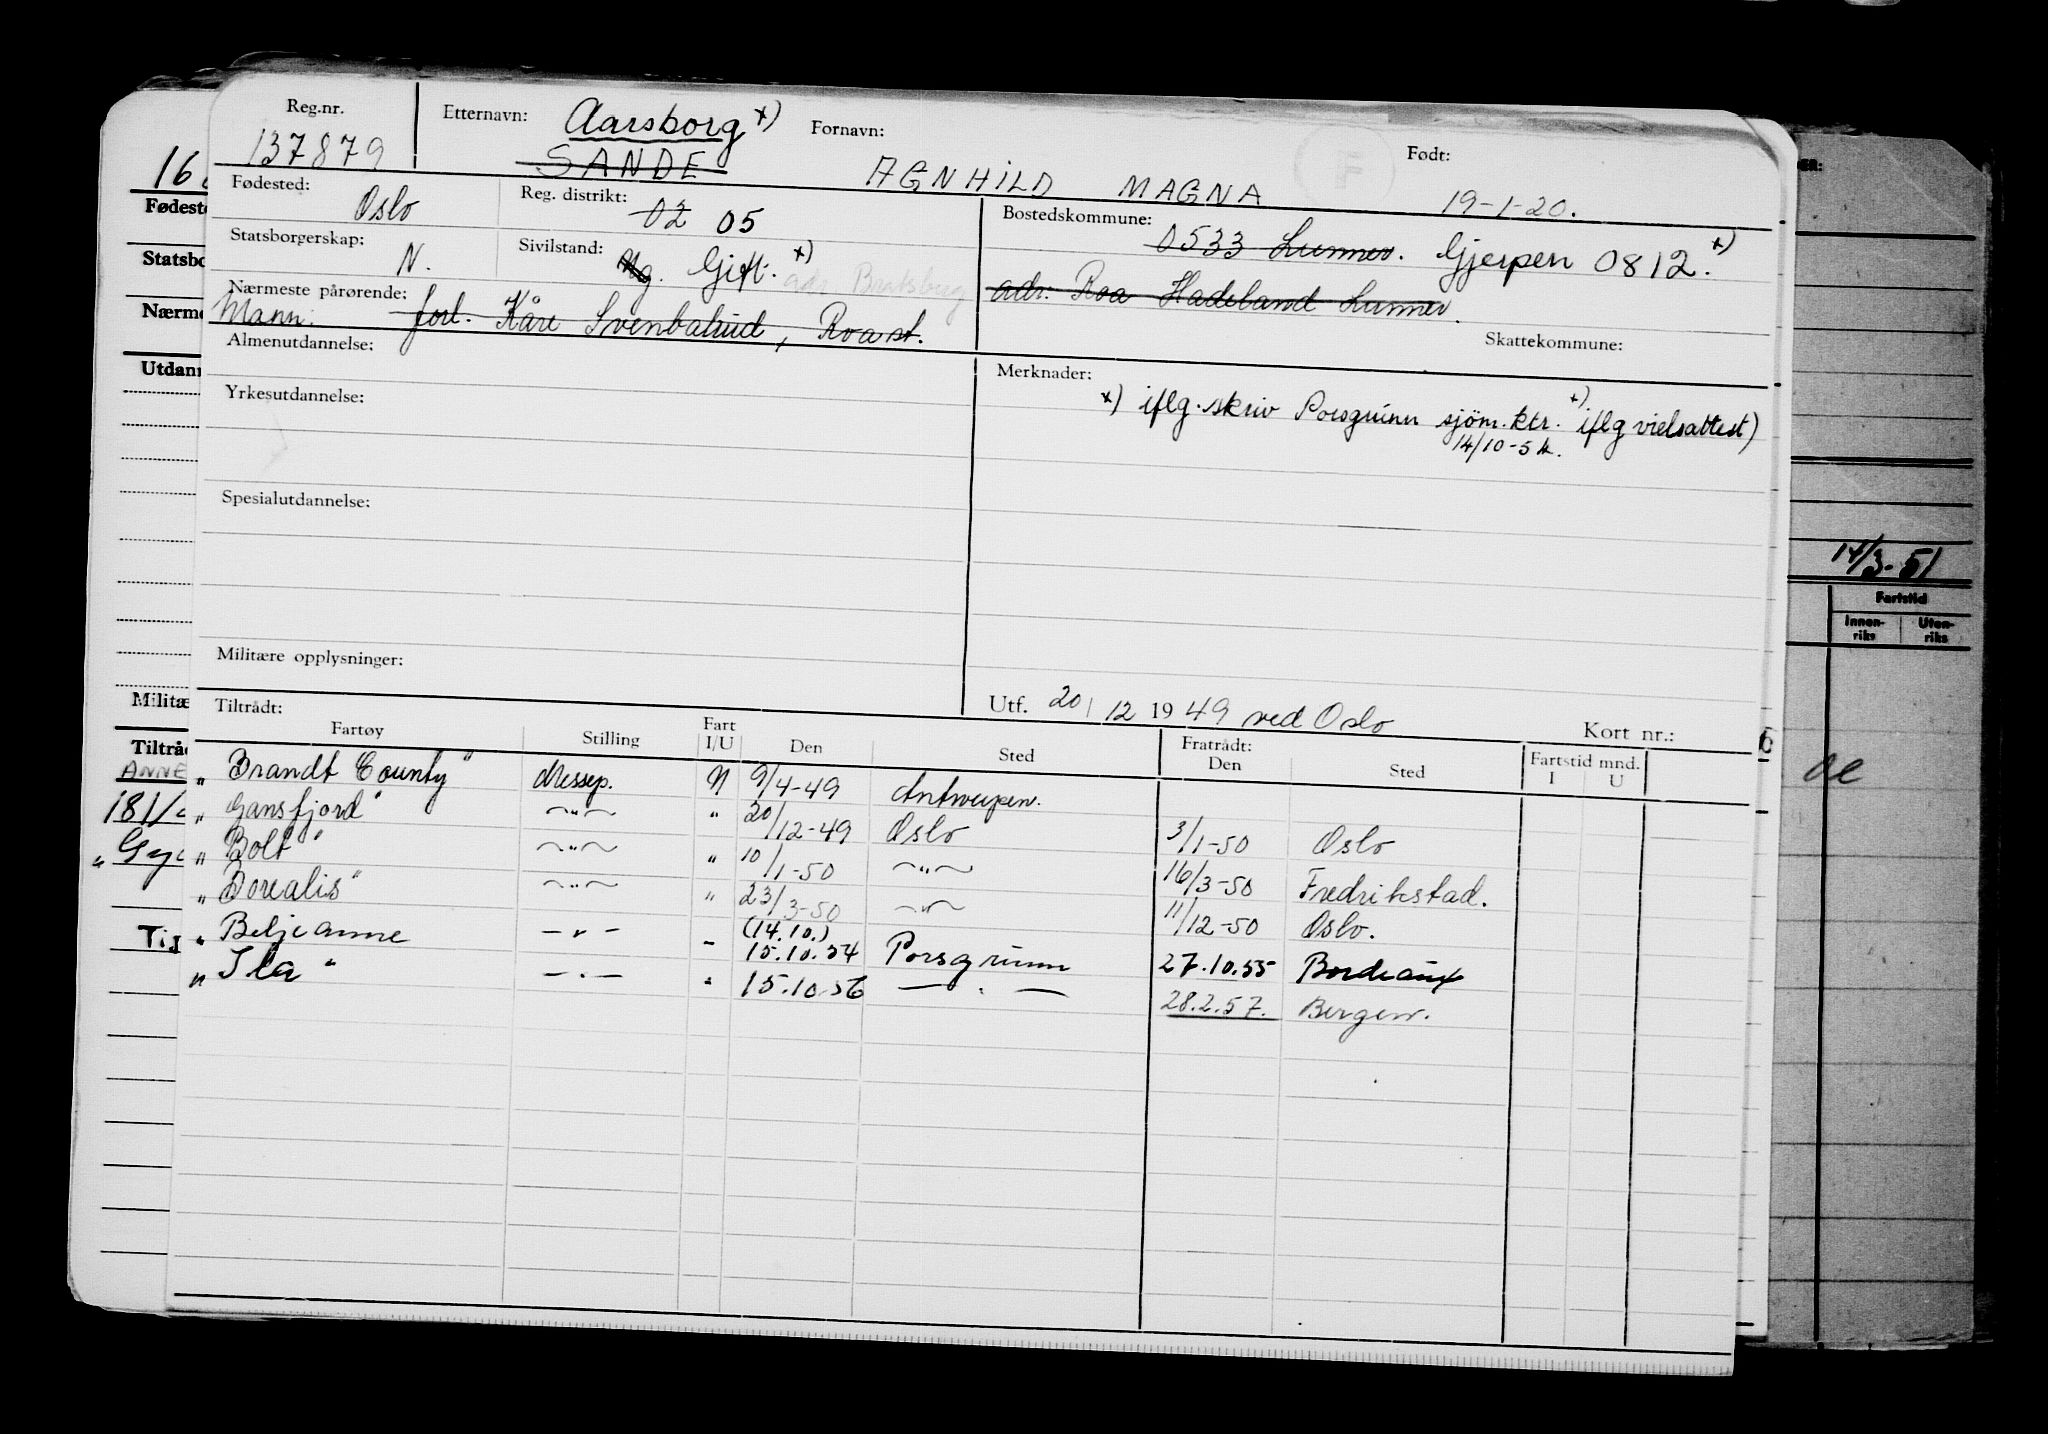 Reg.nr. Etternavn: Aarsborg x) Fornavn: Født:
137879 SANDE AGNHILD MAGNA 19-1-20.
Fødested: Oslo Reg. distrikt: 02 05 Bostedskommune: 0533 Lunner. Gjerpen 0812. x)
Statsborgerskap: N. Sivilstand: Ug. Gift. x) adr. Bratsberg adr. Roa Hadeland Lunner.
Nærmeste pårørende:
Mann: forl. Kåre Svenbalrud, Roa st.
Skattekommune:
Almenutdannelse: Merknader:
x) iflg. skriv Porsgrunn sjöm. ktr. x) iflg vielsattest)
14/10-54.
Yrkesutdannelse:
Spesialutdannelse:
Militære opplysninger:
Utf. 20/12 1949 ved Oslo Kort nr.:
Tiltrådt: Fratrådt:
Fartøy Stilling Fart I/U Den Sted Den Sted Fartstid mnd. I U
"Brandt County" Messep. N 9/4-49 Antwerpen.
"Gansfjord" -"- " 20/12-49 Oslo 3/1-50 Oslo
"Bolt" -"- " 10/1-50 -"- 16/3-50 Fredrikstad.
"Borealis" -"- " 23/3-50 -"- 11/12-50 Oslo.
" Beljeanne -"- - (14.10.) 15.10.54 Porsgrunn 27.10.55 Bordeaux
"Ila" -"- " 15.10.56 -"- 28.2.57. Bergen.
16
Fødeste
Statsbo
Nærme
Utdann
Militæ
Tiltrå
ANNE
181/
"Gy
Tig
14/3-51
Fartstid
Innen-riks Uten-riks